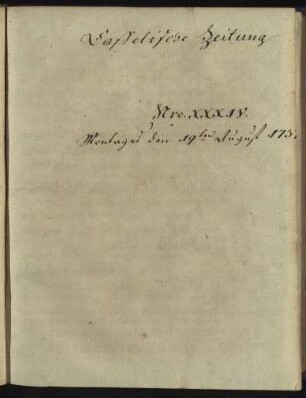 Casselische Zeitung
Nro. XXXIV.
Montages den 19ten August.